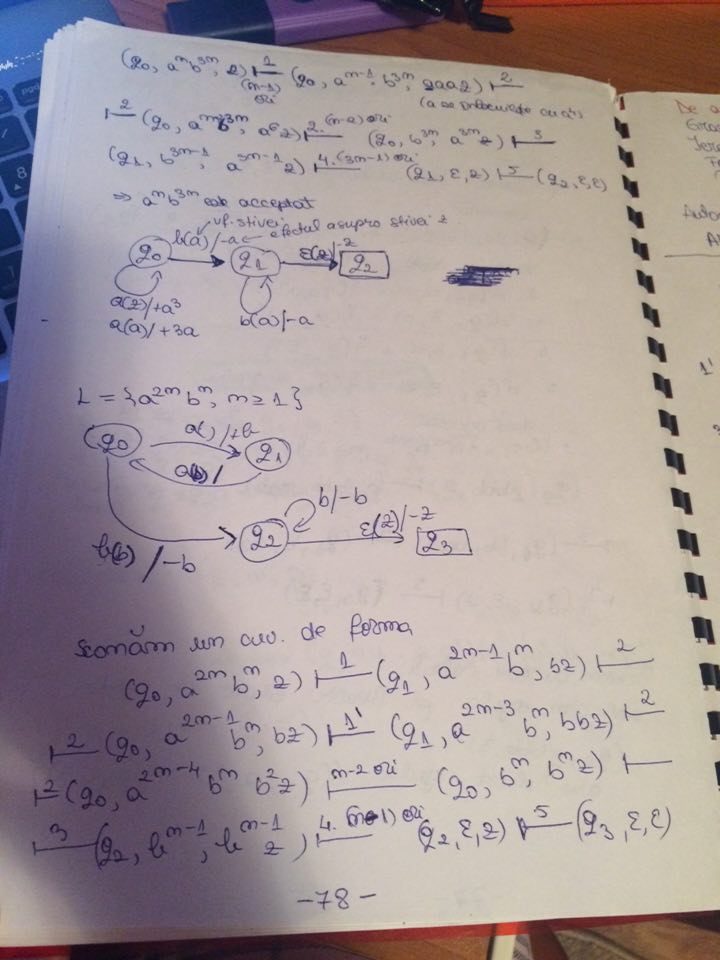 (q₀, aᵐb³ᵐ, z) ⊢¹ (q₀, aᵐ⁻¹, b³ᵐ, aaaz) ⊢²
(m-1) ori (a se înlocuiește cu a⁴)
⊢² (q₀, aᵐ⁻²b³ᵐ, a⁶z) ⊢² (m-2) ori (q₀, b³ᵐ, a³ᵐz) ⊢³
(q₁, b³ᵐ⁻¹, a³ᵐ⁻¹z) ⊢⁴·(3m-1) ori (q₁, ε, z) ⊢⁵ (q₂, ε, ε)
⇒ aᵐb³ᵐ este acceptat
vf. stivei
b(a)/-a ← efectul asupra stivei
q₀ q₁ ε(z)/-z q₂
a(z)/+a³
a(a)/+3a b(a)/-a
L = {a²ᵐbᵐ, m ≥ 1}
q₀ a( )/+b q₁
a(b)/
b/-b
q₂ ε(z)/-z q₃
b(b)/-b
scanăm un cuv. de forma
(q₀, a²ᵐbᵐ, z) ⊢¹ (q₁, a²ᵐ⁻¹bᵐ, bz) ⊢²
⊢² (q₀, a²ᵐ⁻¹bᵐ, bz) ⊢¹' (q₁, a²ᵐ⁻³bᵐ, bbz) ⊢²
⊢² (q₀, a²ᵐ⁻⁴bᵐ b²z) ⊢ m-2 ori (q₀, bᵐ, bᵐz) ⊢
⊢³ (q₂, bᵐ⁻¹, bᵐ⁻¹z) ⊢⁴·(m-1) ori (q₂, ε, z) ⊢⁵ (q₃, ε, ε)
-78-
De a